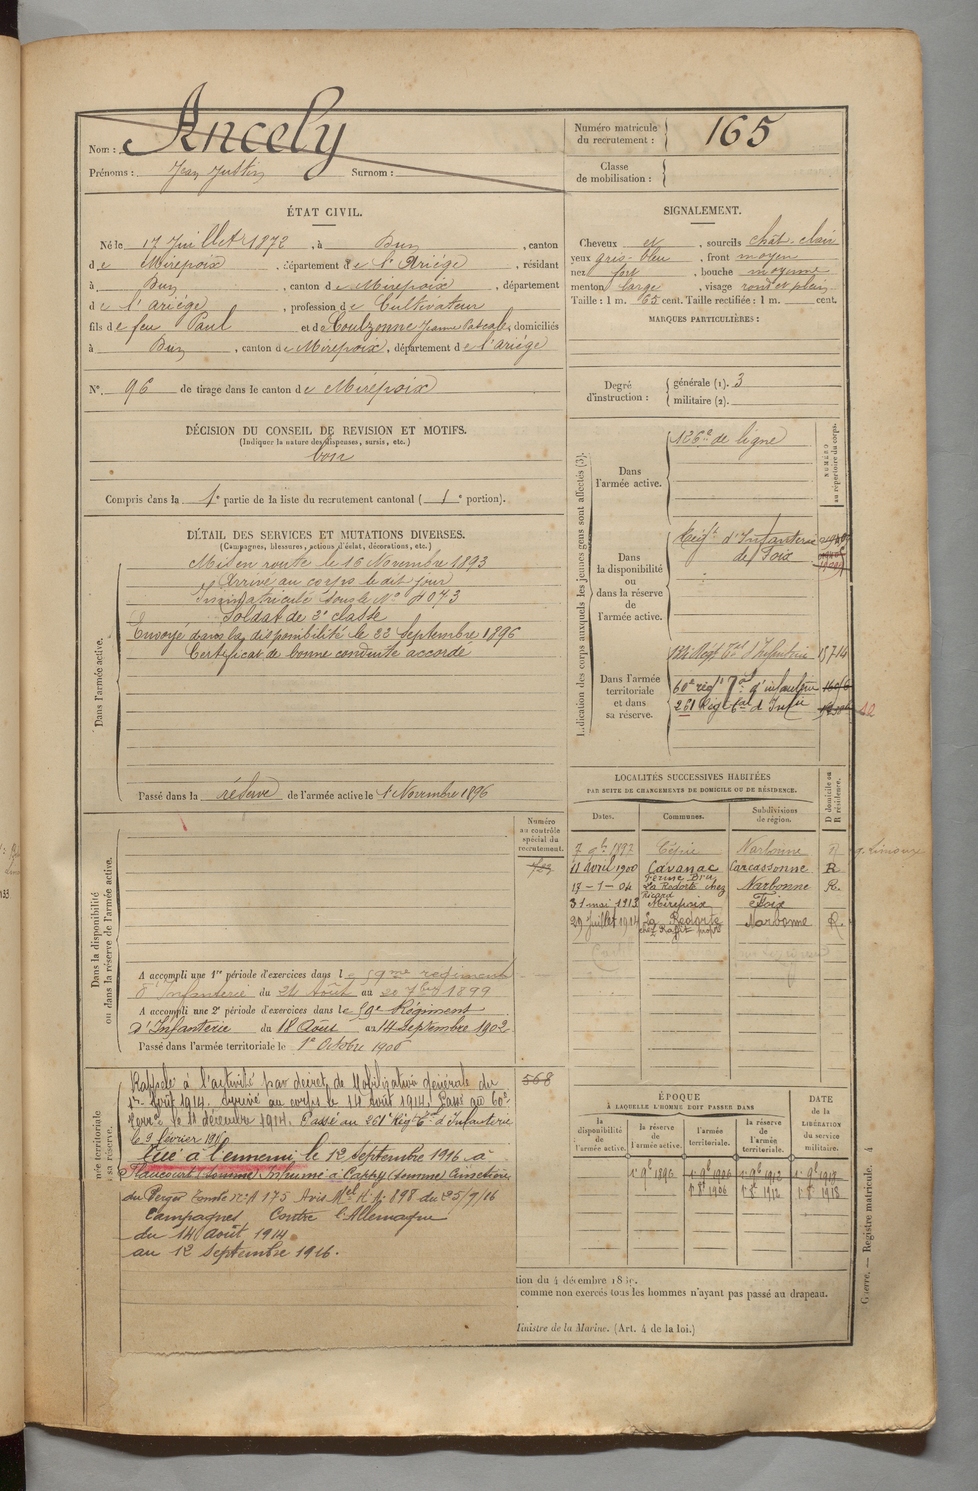 Nom : Ancely
Prénoms : Jean Justin Surnom :
Numéro matricule du recrutement : 165
Classe de mobilisation :
ÉTAT CIVIL.
Né le 17 Juillet 1872, à Dun, canton
de Mirepoix, département de l'Ariége, résidant
à Dun, canton de Mirepoix, département
de l'ariége, profession de Cultivateur
fils de feu Paul et de Coulzonne Jeanne Pascale, domiciliés
à Dun, canton de Mirepoix, département de l'ariége
N° 96 de tirage dans le canton de Mirepoix
SIGNALEMENT.
Cheveux et, sourcils chât-clair
yeux gris-bleu, front moyen
nez fort, bouche moyenne
menton large, visage rond et plein
Taille : 1 m. 65 cent. Taille rectifiée : 1 m. cent.
MARQUES PARTICULIÈRES :
Degré d'instruction : générale (1). 3
militaire (2).
DÉCISION DU CONSEIL DE REVISION ET MOTIFS.
(Indiquer la nature des dispenses, sursis, etc.)
bon
Compris dans la 1e partie de la liste du recrutement cantonal (1e portion).
DÉTAIL DES SERVICES ET MUTATIONS DIVERSES.
(Campagnes, blessures, actions d'éclat, décorations, etc.)
Dans l'armée active.
Mis en route le 16 Novembre 1893
Arrivé au corps le dit jour
Immatriculé sous le N° 4073
Soldat de 2e classe
Envoyé dans la disponibilité le 22 Septembre 1896
Certificat de bonne conduite accordé
Passé dans la réserve de l'armée active le 1er Novembre 1896
Indication des corps auxquels les jeunes gens sont affectés (3).
NUMÉRO au répertoire du corps.
Dans l'armée active.
126e de ligne
Dans la disponibilité ou dans la réserve de l'armée active.
Régt d'Infanterie
de Foix
Dans l'armée territoriale et dans sa réserve.
Regt Tal d'Infanterie 1571
60e régt Tal d'infanterie
261 Régt Tal d'Infie
LOCALITÉS SUCCESSIVES HABITÉES
PAR SUITE DE CHANGEMENTS DE DOMICILE OU DE RÉSIDENCE.
Dates. Communes. Subdivisions de région. D domicile ou R résidence.
Narbonne
11 avril 1900 Cavanac Carcassonne R
17-1-04 La Redorte chez Ricard Narbonne R.
31 mai 1913 Mirepoix Foix
29 Juillet 1914 La Redorte Narbonne R
Numéro au contrôle spécial du recrutement.
Dans la disponibilité ou dans la réserve de l'armée active.
A accompli une 1re période d'exercices dans le 59me regiment
d'Infanterie du 24 Août au 20 7bre 1899
A accompli une 2e période d'exercices dans le 59e Régiment
d'Infanterie du 18 Août au 14 Septembre 1902
Passé dans l'armée territoriale le 1er Octobre 1906
568
Rappelé à l'activité par décret de Mobilisation générale du
1er Août 1914. Arrivé au corps le 14 août 1914. Passé au 60e
Terral le 11 décembre 1914. Passé au 261e Rég Tal d'Infanterie
le 9 février 1916
Tué à l'ennemi, le 12 Septembre 1916 à
Flaucourt (Somme) Inhumé à Cappy (Somme)
Tombe n° 175 Avis Mel 198 du 25/9/16
Campagnes Contre l'Allemagne
du 14 août 1914
au 12 Septembre 1916.
ÉPOQUE
À LAQUELLE L'HOMME DOIT PASSER DANS
la disponibilité de l'armée active. la réserve de l'armée active. l'armée territoriale. la réserve de l'armée territoriale.
DATE de la LIBÉRATION du service militaire.
1er 9b 1896 1er 9b 1906 1er 9b 1912 1er 9b 1918
1er 8b 1906 1er 8b 1912 1er 8b 1918
comme non exercés tous les hommes n'ayant pas passé au drapeau.
Ministre de la Marine. (Art. 4 de la loi.)
Guerre. — Registre matricule. 4